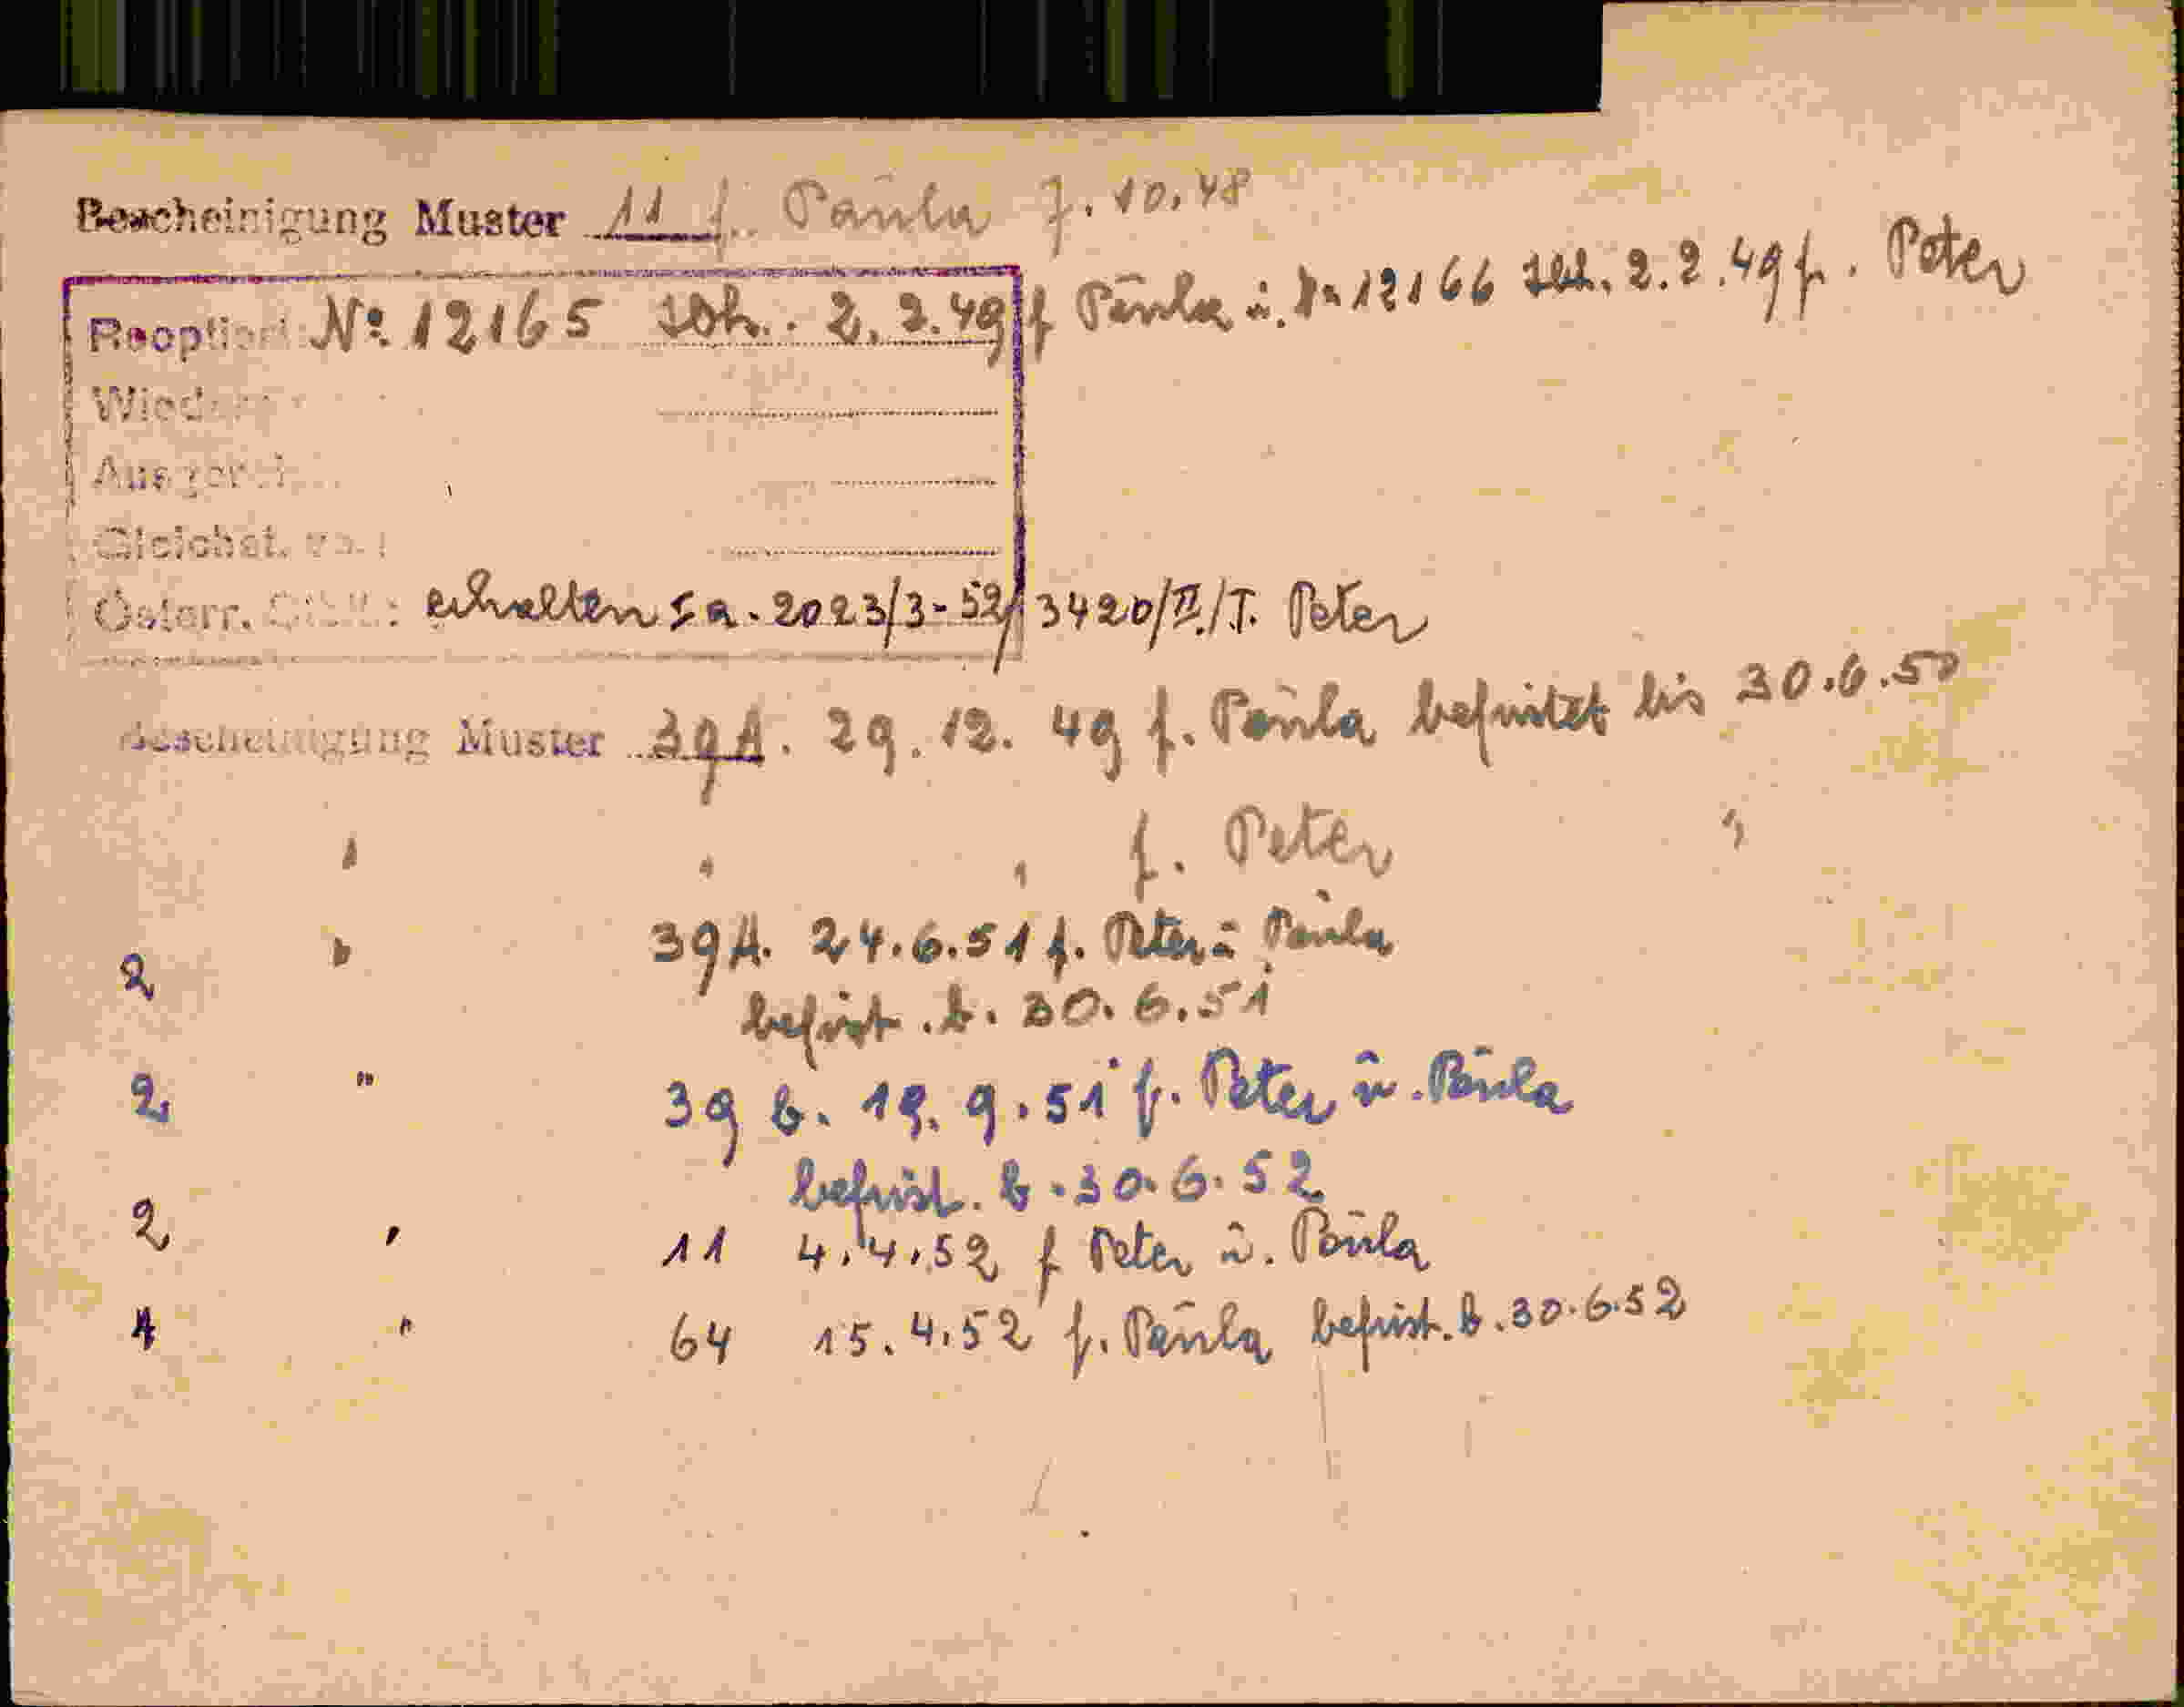 Bescheinigung Muster 11 f. Paula 7.10.48
Reoption: No. 12165 2.2.49 f Paula u. No 12166 2.2.49 f. Peter
Gleichst.
Österr. erhalten I a - 2023/3-52/3420/II./I. Peter
Bescheinigung Muster 39A. 29.12.49 f. Paula befristet bis 30.6.50
" " " f. Peter "
2 " 39A. 24.6.51 f. Peter u Paula
befrist. b. 30.6.51
2 " 39 b. 19.9.51 f. Peter u. Paula
befrist. b. 30.6.52
2 " 11 4.4.52 f Peter u. Paula
1 " 64 15.4.52 f. Paula befrist. b. 30.6.52